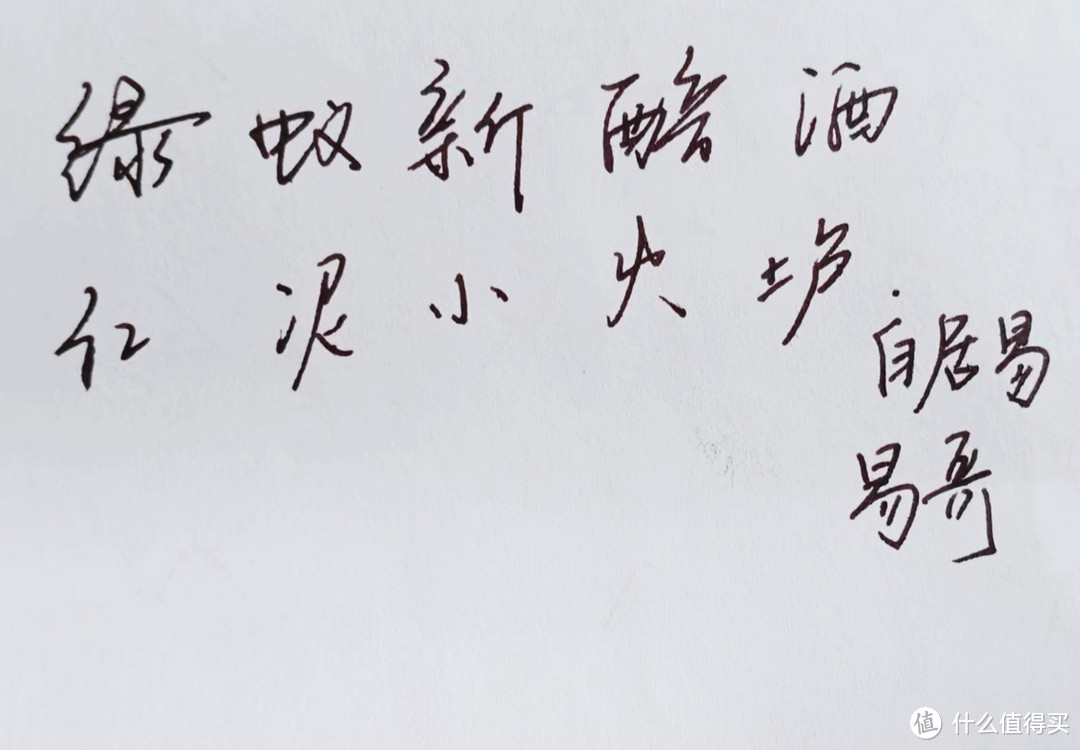 绿蚁新醅酒
红泥小火炉
白居易
易哥
值 什么值得买